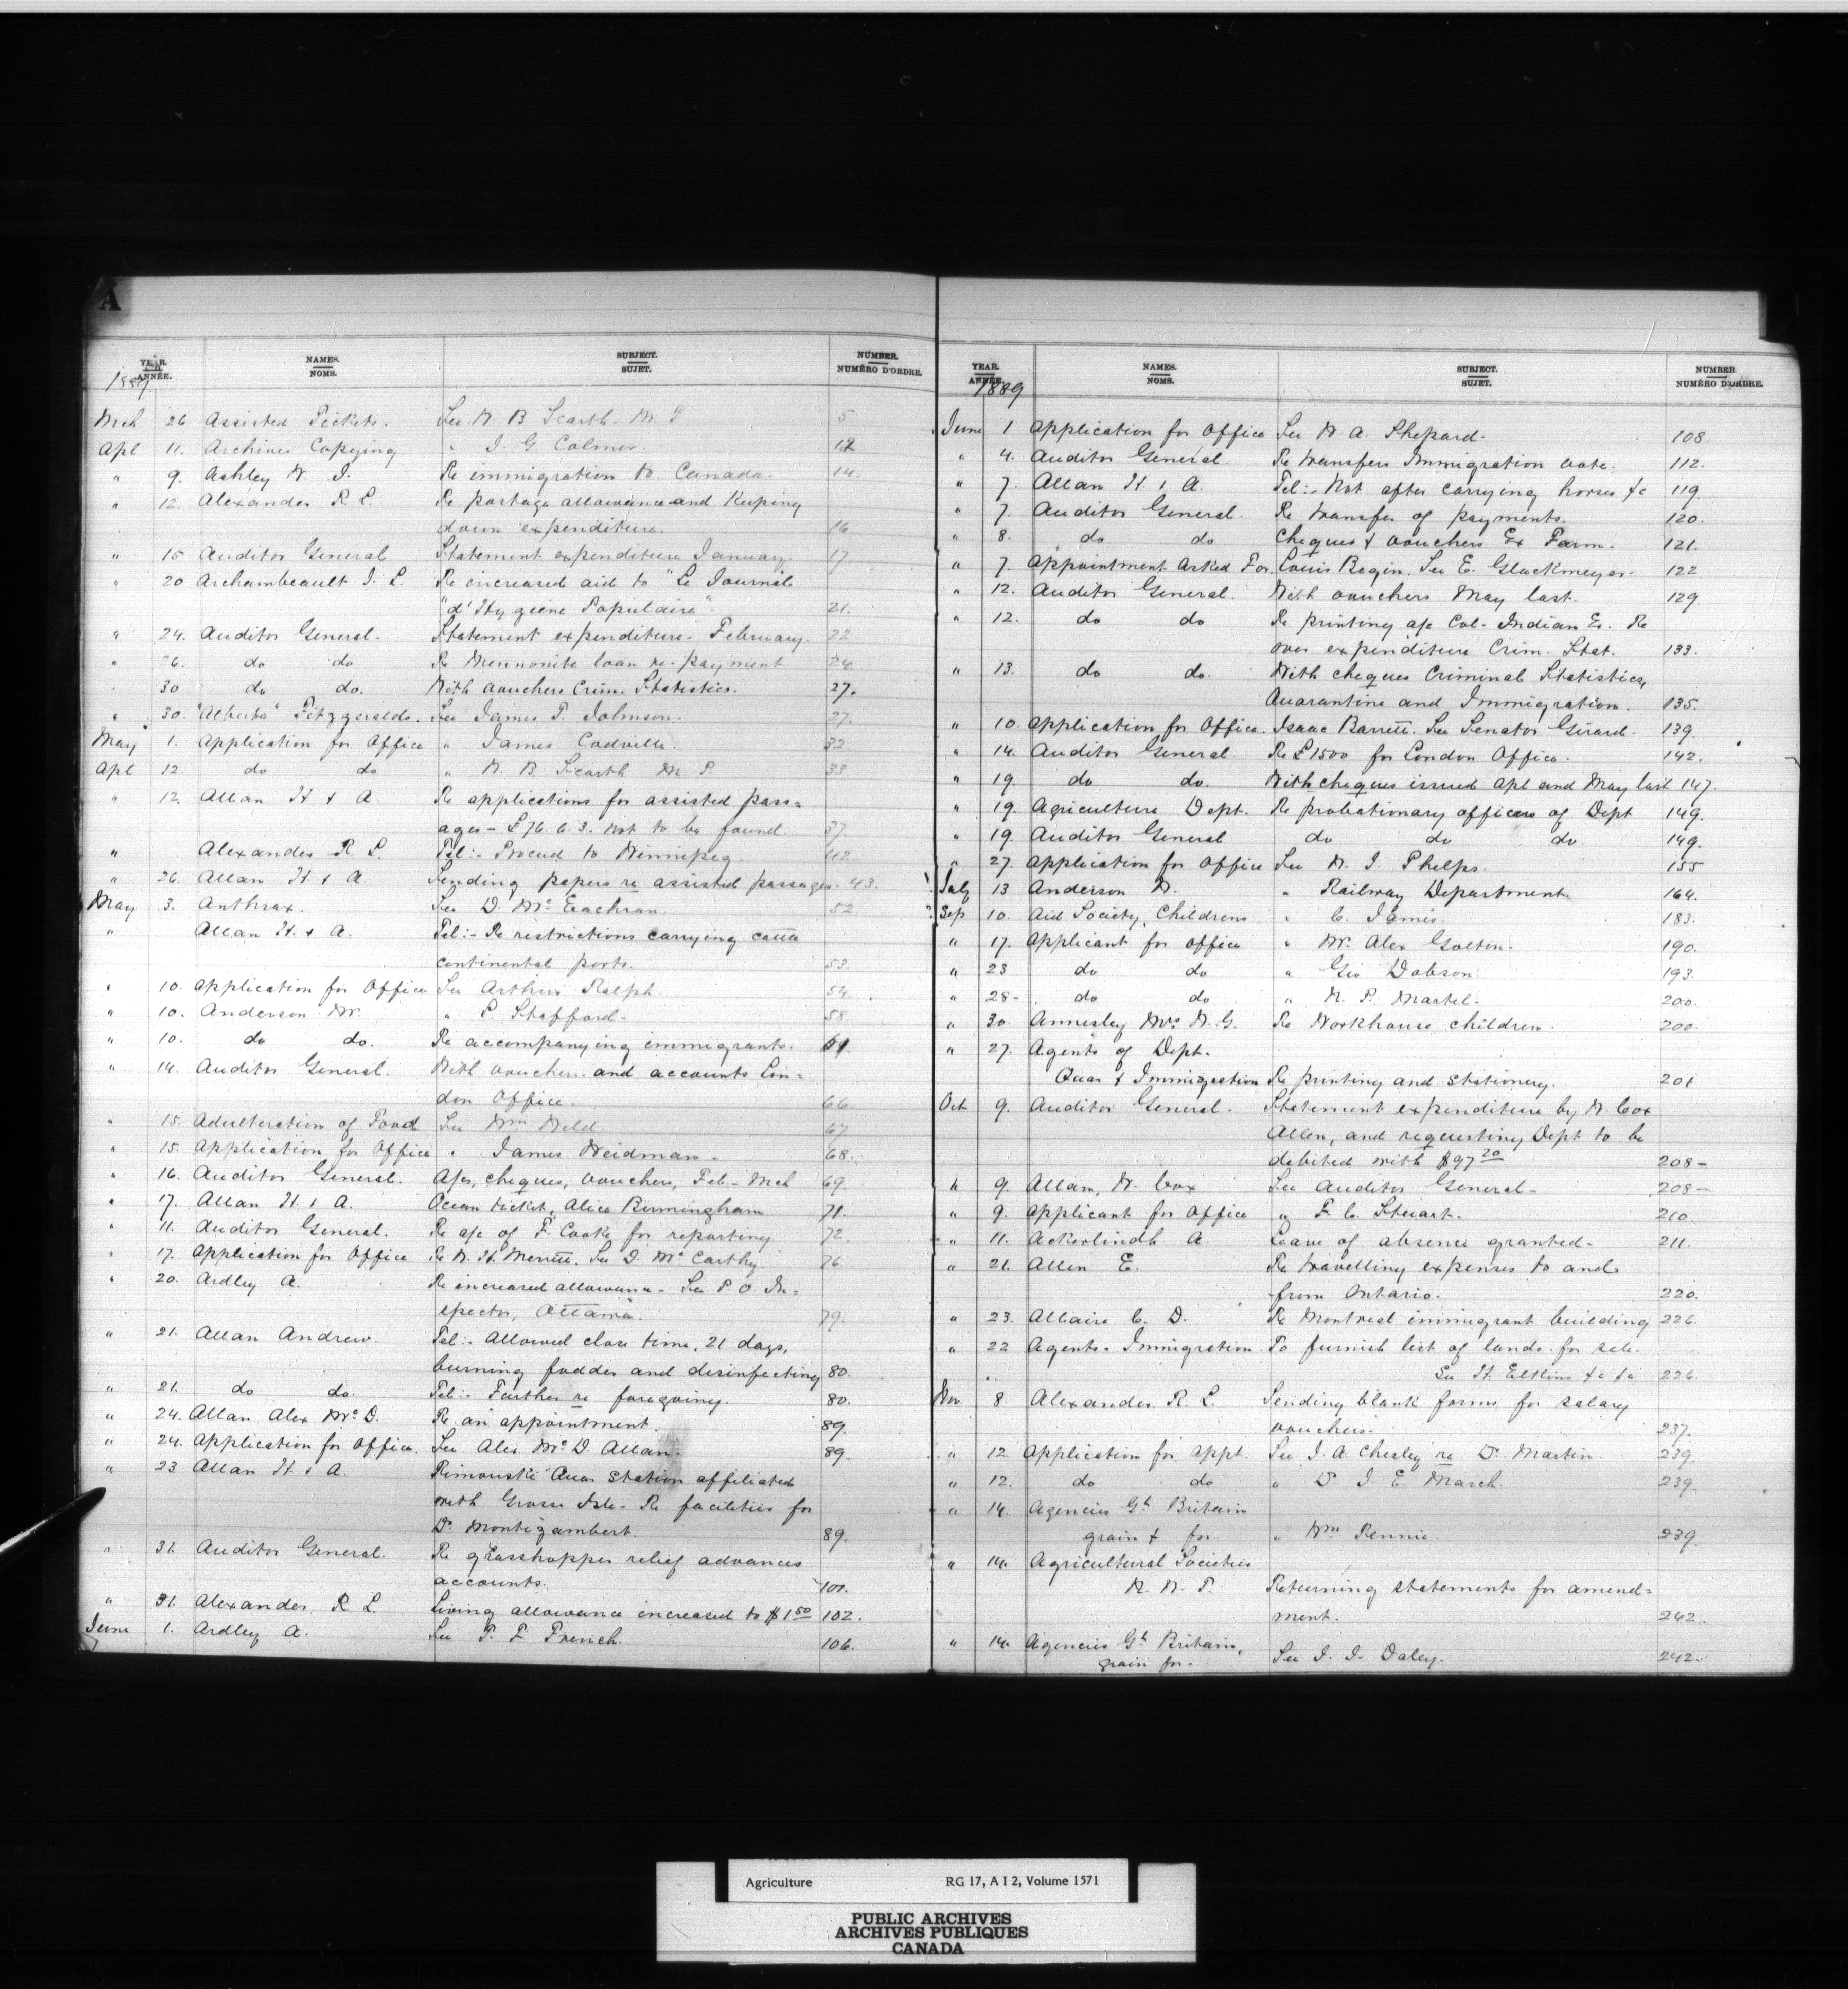 A
YEAR. ANNÉE. NAMES. NOMS. SUBJECT. SUJET. NUMBER. NUMÉRO D'ORDRE.
1889.
Mch 26 Assisted Tickets. See W. B. Scarth. M. P 5
Apl 11. Archives Copying " J. G. Colmer. 12
" 9. Ashley W. J. Re immigration to Canada. 14.
" 12. Alexander R. L. Re postage allowance and Keeping
down expenditure. 16
" 15 Auditor General Statement expenditure January. 17
" 20 Archambeault J. L. Re increased aid to "Le Journal
"d'Hygiene Populaire". 21.
" 24. Auditor General. Statement expenditure. February. 22
" 26. do do Re Mennonite loan re-payment 24
30 do do. With vouchers Crim. Statistics. 27.
" 30. "Alberta" Fitzgeralds. See James T. Johnson. 27.
May 1. Application for Office " James Codville. 32
Apl 12. do do " W. B. Scarth M. P. 33
" 12. Allan H. & A. Re applications for assisted pass=
ages - £76. 6. 3. Not to be found. 37
" Alexander R. L. Tel:- Proceed to Winnipeg. 42.
" 26. Allan H. & A. Sending papers re assisted passages. 43.
May 3. Anthrax. See D. McEachran 52
" Allan H. & A. Tel:- Re restrictions carrying cattle
continental ports. 53.
" 10. Application for Office See Arthur Ralph. 54.
" 10. Anderson W. " L. Stafford. 58.
" 10. do do. Re accompanying immigrants. 61.
" 14. Auditor General. With vouchers and accounts Lon=
don Office. 66
" 15. Adulteration of Food See Wm Weld. 67
" 15. Application for Office " James Weidman. 68.
" 16. Auditor General. A/cs, cheques, vouchers, Feb - Mch 69.
" 17. Allan H. & A. Ocean ticket, Alice Birmingham 71.
" 11. Auditor General. Re a/c of F. Cooke for reporting 72.
" 17. Application for Office Re W. H. Merritt. See D. McCarthy. 76.
" 20. Ardley A. Re increased allowance. See P. O. In=
spector, Ottawa. 79.
" 21. Allan Andrew. Tel:- Allowed close time, 21 days,
burning fodder and disinfecting 80.
" 21. do do. Tel:- Further re foregoing. 80.
" 24. Allan Alex McD. Re an appointment. 89.
" 24. Application for Office. See Alex McD. Allan. 89.
" 23. Allan H. & A. Rimouski Quar Station affiliated
with Grosse Isle. Re facilities for
Dr. Montizambert. 89.
" 31. Auditor General. Re grasshopper relief advances
accounts. 101.
" 31. Alexander R. L. Living allowance increased to $1.50 102.
June 1. Ardley A. See T. L. French. 106.
YEAR. ANNÉE. NAMES. NOMS. SUBJECT. SUJET. NUMBER NUMÉRO D'ORDRE.
1889
June 1 Application for Office See W. A. Shepard. 108.
" 4. Auditor General. Re transfers Immigration vote. 112.
" 7. Allan H. & A. Tel:- Not after carrying horses &c 119.
" 7. Auditor General. Re transfer of payments. 120.
" 8. do do Cheques & vouchers Ex Farm. 121.
" 7. Appointment Asked For. Louis Begin. See E. Glackmeyer. 122
" 12. Auditor General. With vouchers May last. 129.
" 12. do do Re printing a/c Col- Indian Ex. Re
over expenditure Crim. Stat. 133.
" 13. do do. With cheques Criminal Statistics,
Quarantine and Immigration. 135.
" 10. Application for Office. Isaac Barrett. See Senator Girard. 139.
" 14. Auditor General. Re £1500 for London Office. 142.
" 19. do do. With cheques issued Apl and May last 147.
" 19. Agriculture Dept. Re probationary officers of Dept 149.
" 19. Auditor General do do do. 149.
" 27. Application for Office See W. J. Phelps. 155
July 13 Anderson W. " Railway Department. 164.
Sep 10. Aid Society, Childrens " C. James. 183.
" 17. Applicant for office " W. Alex Galton. 190.
" 23 do do " Geo Dobson. 193.
" 28. do do " N. P. Martel. 200.
" 30. Annesley Mrs W. G. Re Workhouse children. 200.
" 27. Agents of Dept.
Quar & Immigration Re printing and stationery. 201
Oct 9. Auditor General. Statement expenditure by W. Cox
Allen, and requesting Dept to be
debited with $97.20 208-
" 9. Allan, W. Cox See Auditor General. 208-
" 9. Applicant for Office " F. C. Stewart. 210.
" 11. Ackerlindh A Leave of absence granted. 211.
" 21. Allen E. Re travelling expenses to and
from Ontario. 220.
" 23. Allaire C. D. Re Montreal immigrant building 226.
" 22 Agents. Immigration. To furnish list of lands for sale.
See H. Elkins &c &c 226.
Nov 8. Alexander R. L. Sending blank forms for salary
vouchers. 237.
" 12. Application for appt. See J. A. Chesley re Dr. Martin. 239.
" 12. do do " Dr. J. E. March. 239.
" 14. Agencies Gt Britain
grain & for. " Wm Rennie. 239.
" 14. Agricultural Societies
N. W. T. Returning statements for amend=
ment. 242.
" 14. Agencies Gt Britain,
grain for. See J. J. Daley. 242.
Agriculture RG 17, A I 2, Volume 1571
PUBLIC ARCHIVES
ARCHIVES PUBLIQUES
CANADA